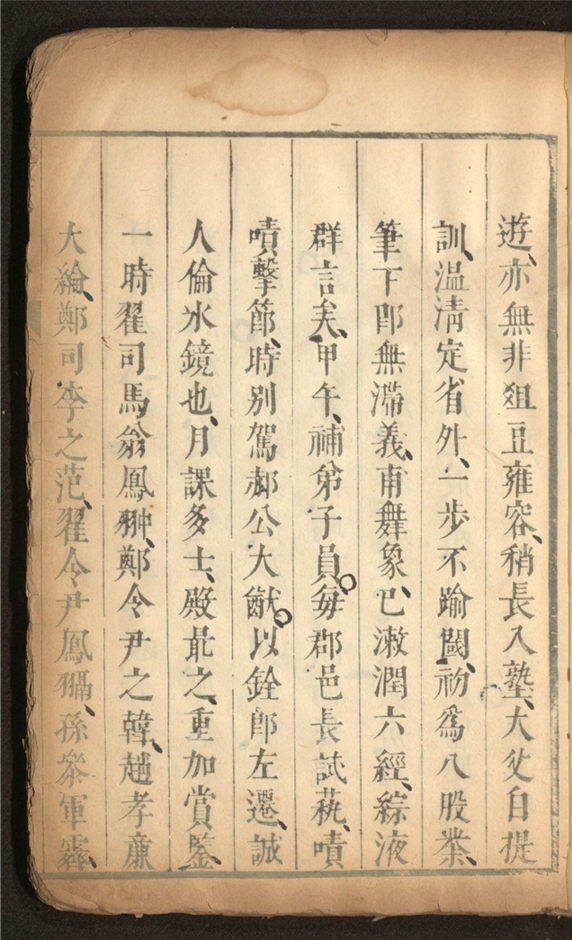 遊、亦無非俎豆雍容、稍長入塾、大父自提
訓、溫清定省外、一步不踰閾、初爲八股業、
筆下卽無滯義、甫舞象、巳漱潤六經、綜液
群言矣、甲午、補弟子員。每郡邑長試蓺、嘖
嘖擊節、時別駕郝公大猷。以銓郎左遷、誠
人倫氷鏡也、月課多士、殿最之、重加賞鑒、
一時翟司馬翁鳳翀、鄭令尹之韓、趙孝廉
大綸、鄭司李之范、翟令尹鳳翥、孫叅軍霱、